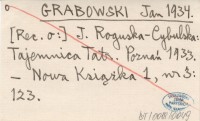 o GRABOWSKI Jan 1934.
[Rec. o:] J. Roguska-Cybulska:
Tajemnica Tatr. Poznań 1933.
– Nowa Książka 1, nr 3:
123.